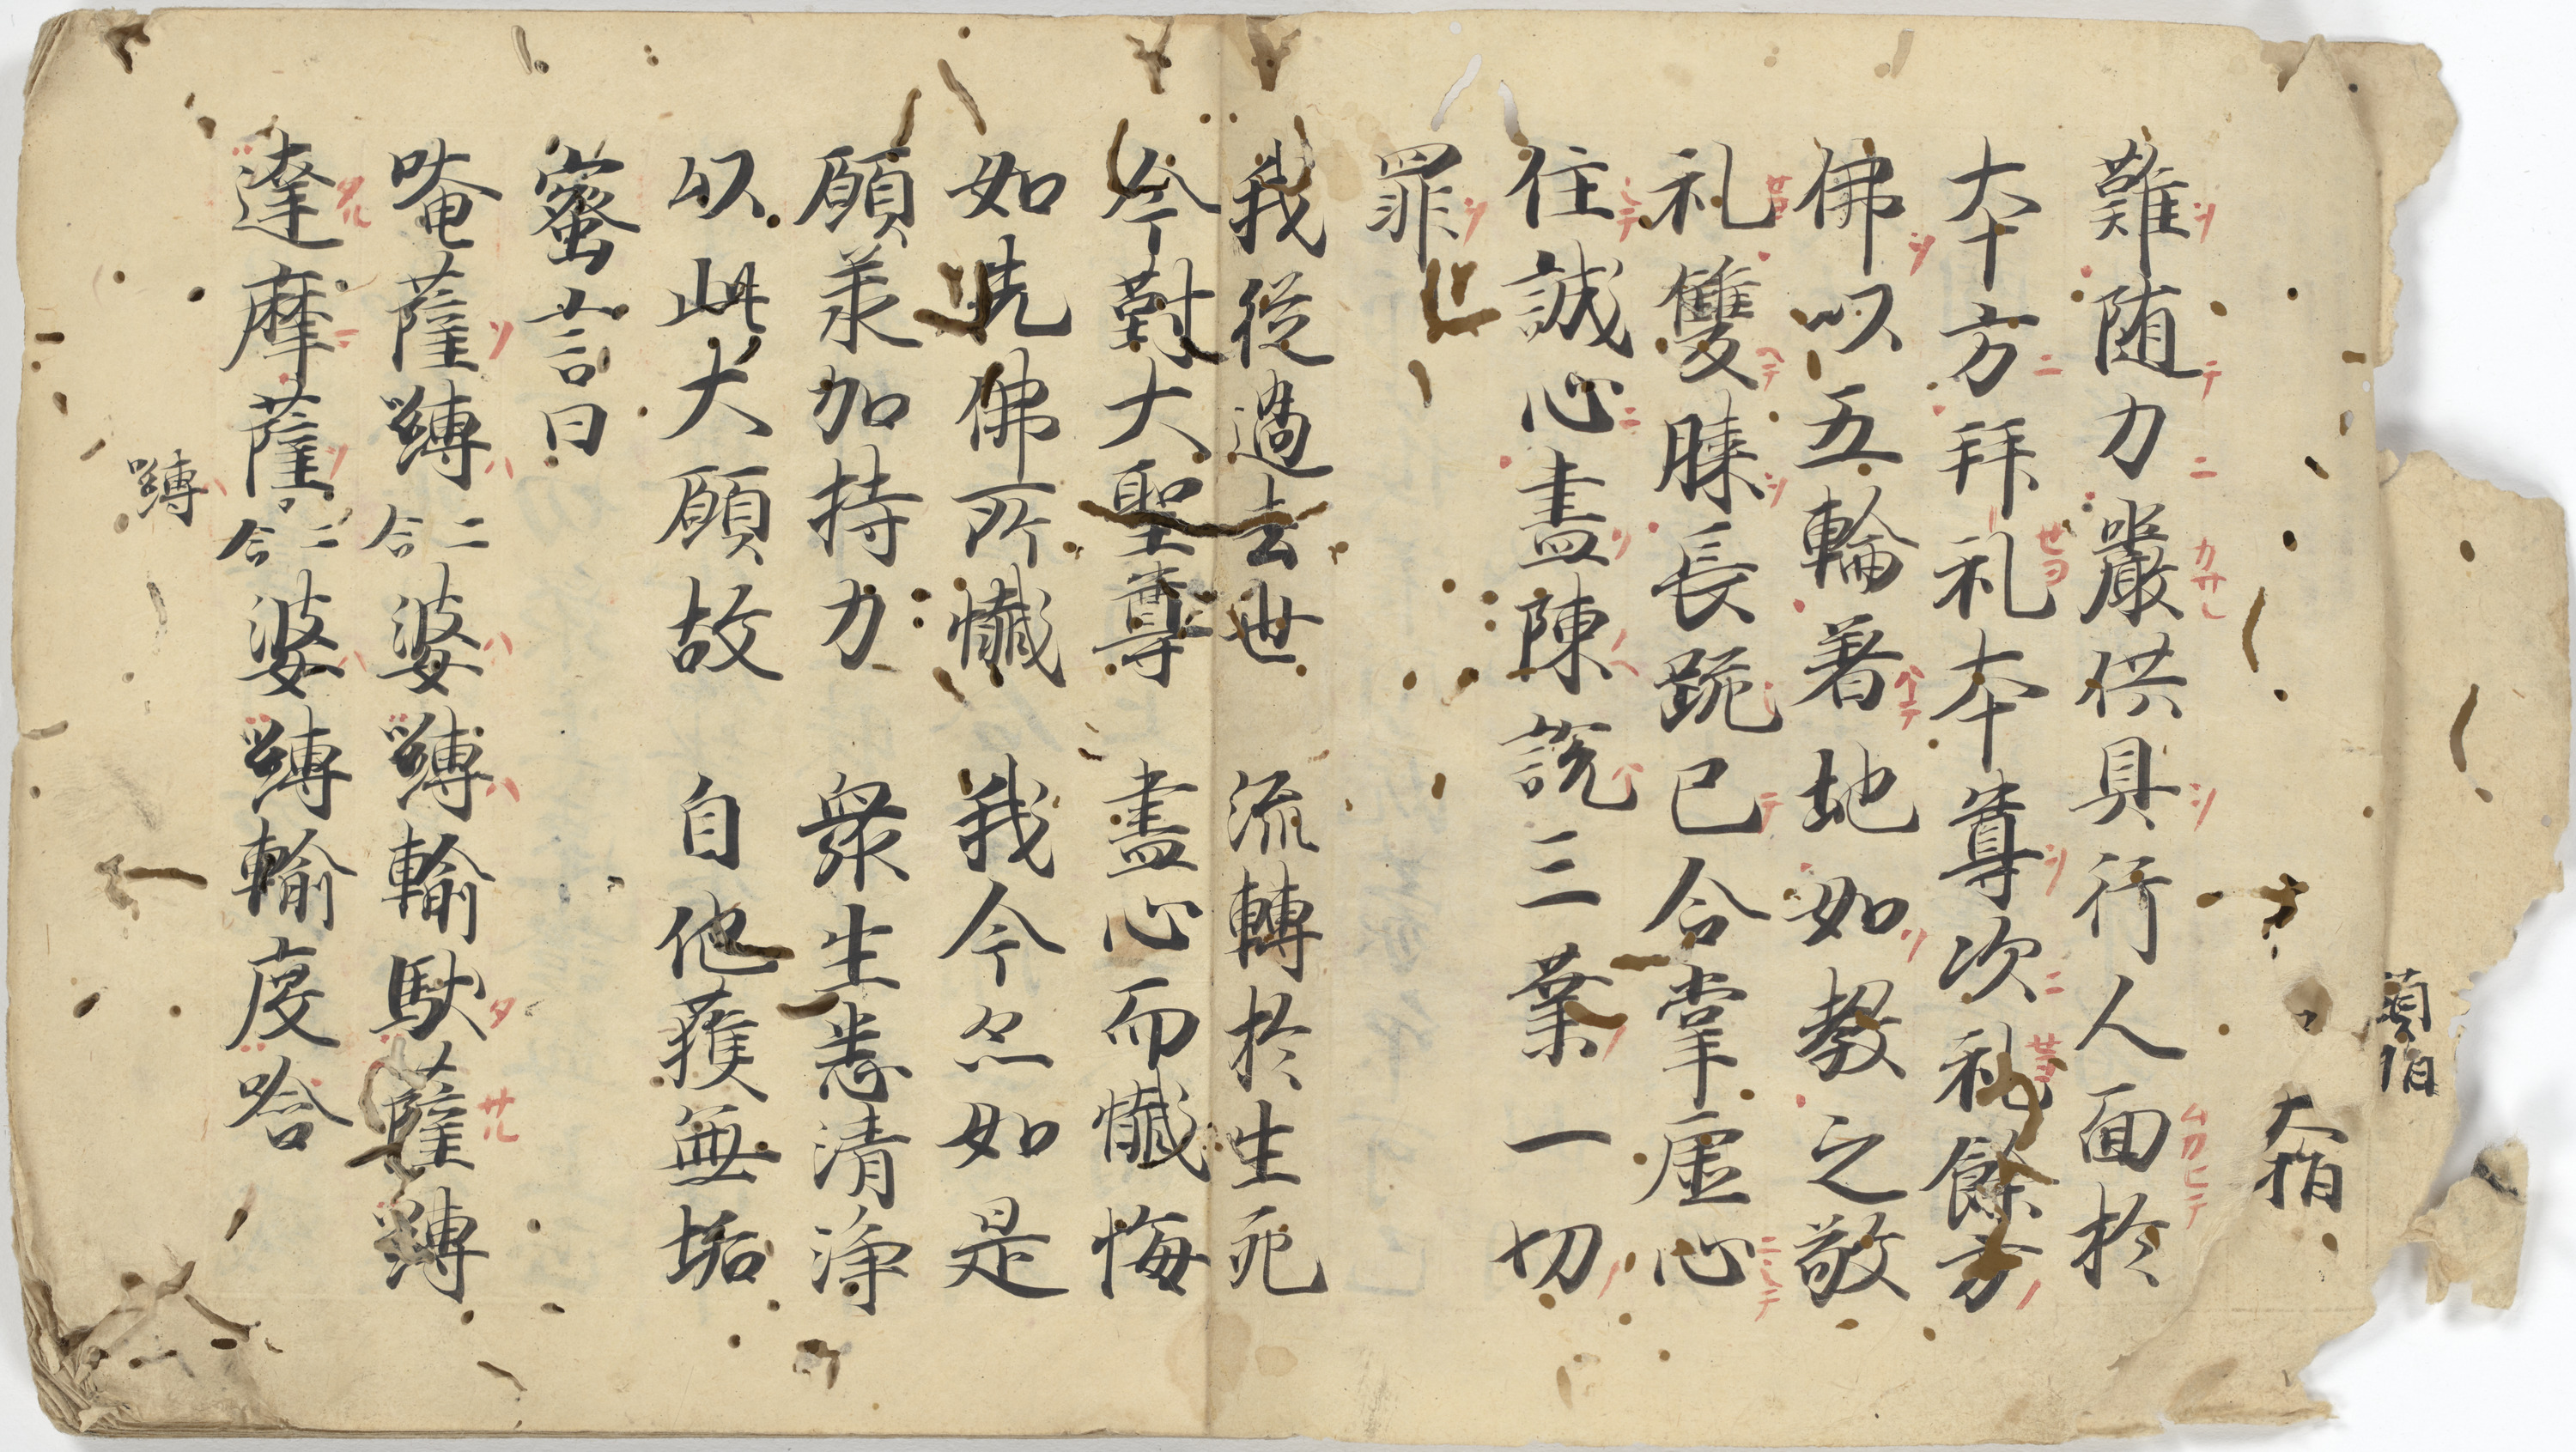 大指
難随力嚴供具行人面於
本方拜礼本尊次礼餘方
佛以五輪著地如教之敬
礼雙膝長跪已合掌虛心
住誠心盡陳說三業一切
罪
我從過去世　流轉於生死
今對大聖尊　盡心而懺悔
如先佛所懺　我今亦如是
願羕加持力　衆生悉清淨
以此大願故　自他獲無垢
蜜言曰
唵薩嚩二合婆嚩輸馱薩嚩
達摩薩二合婆嚩輸度唅
嚩